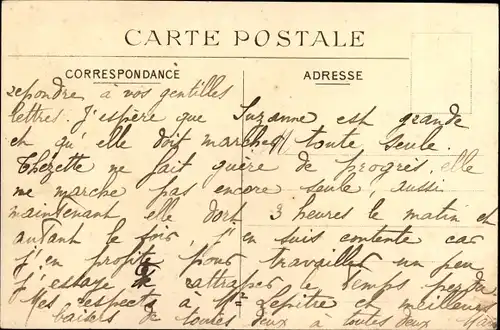 CARTE POSTALE
CORRESPONDANCE
ADRESSE
repondre à vos gentilles
lettres. J'espère que Suzanne est grande
et qu'elle doit marcher toute seule.
Thezette ne fait guère de progrès, elle
ne marche pas encore seule, aussi
maintenant elle dort 3 heures le matin et
autant le soir, j'en suis contente car
j'en profite pour travailler un peu
j'essaye de rattraper le temps perdu
Mes respects à Mr Lepitre et meilleurs
baisers de toutes deux à toutes deux